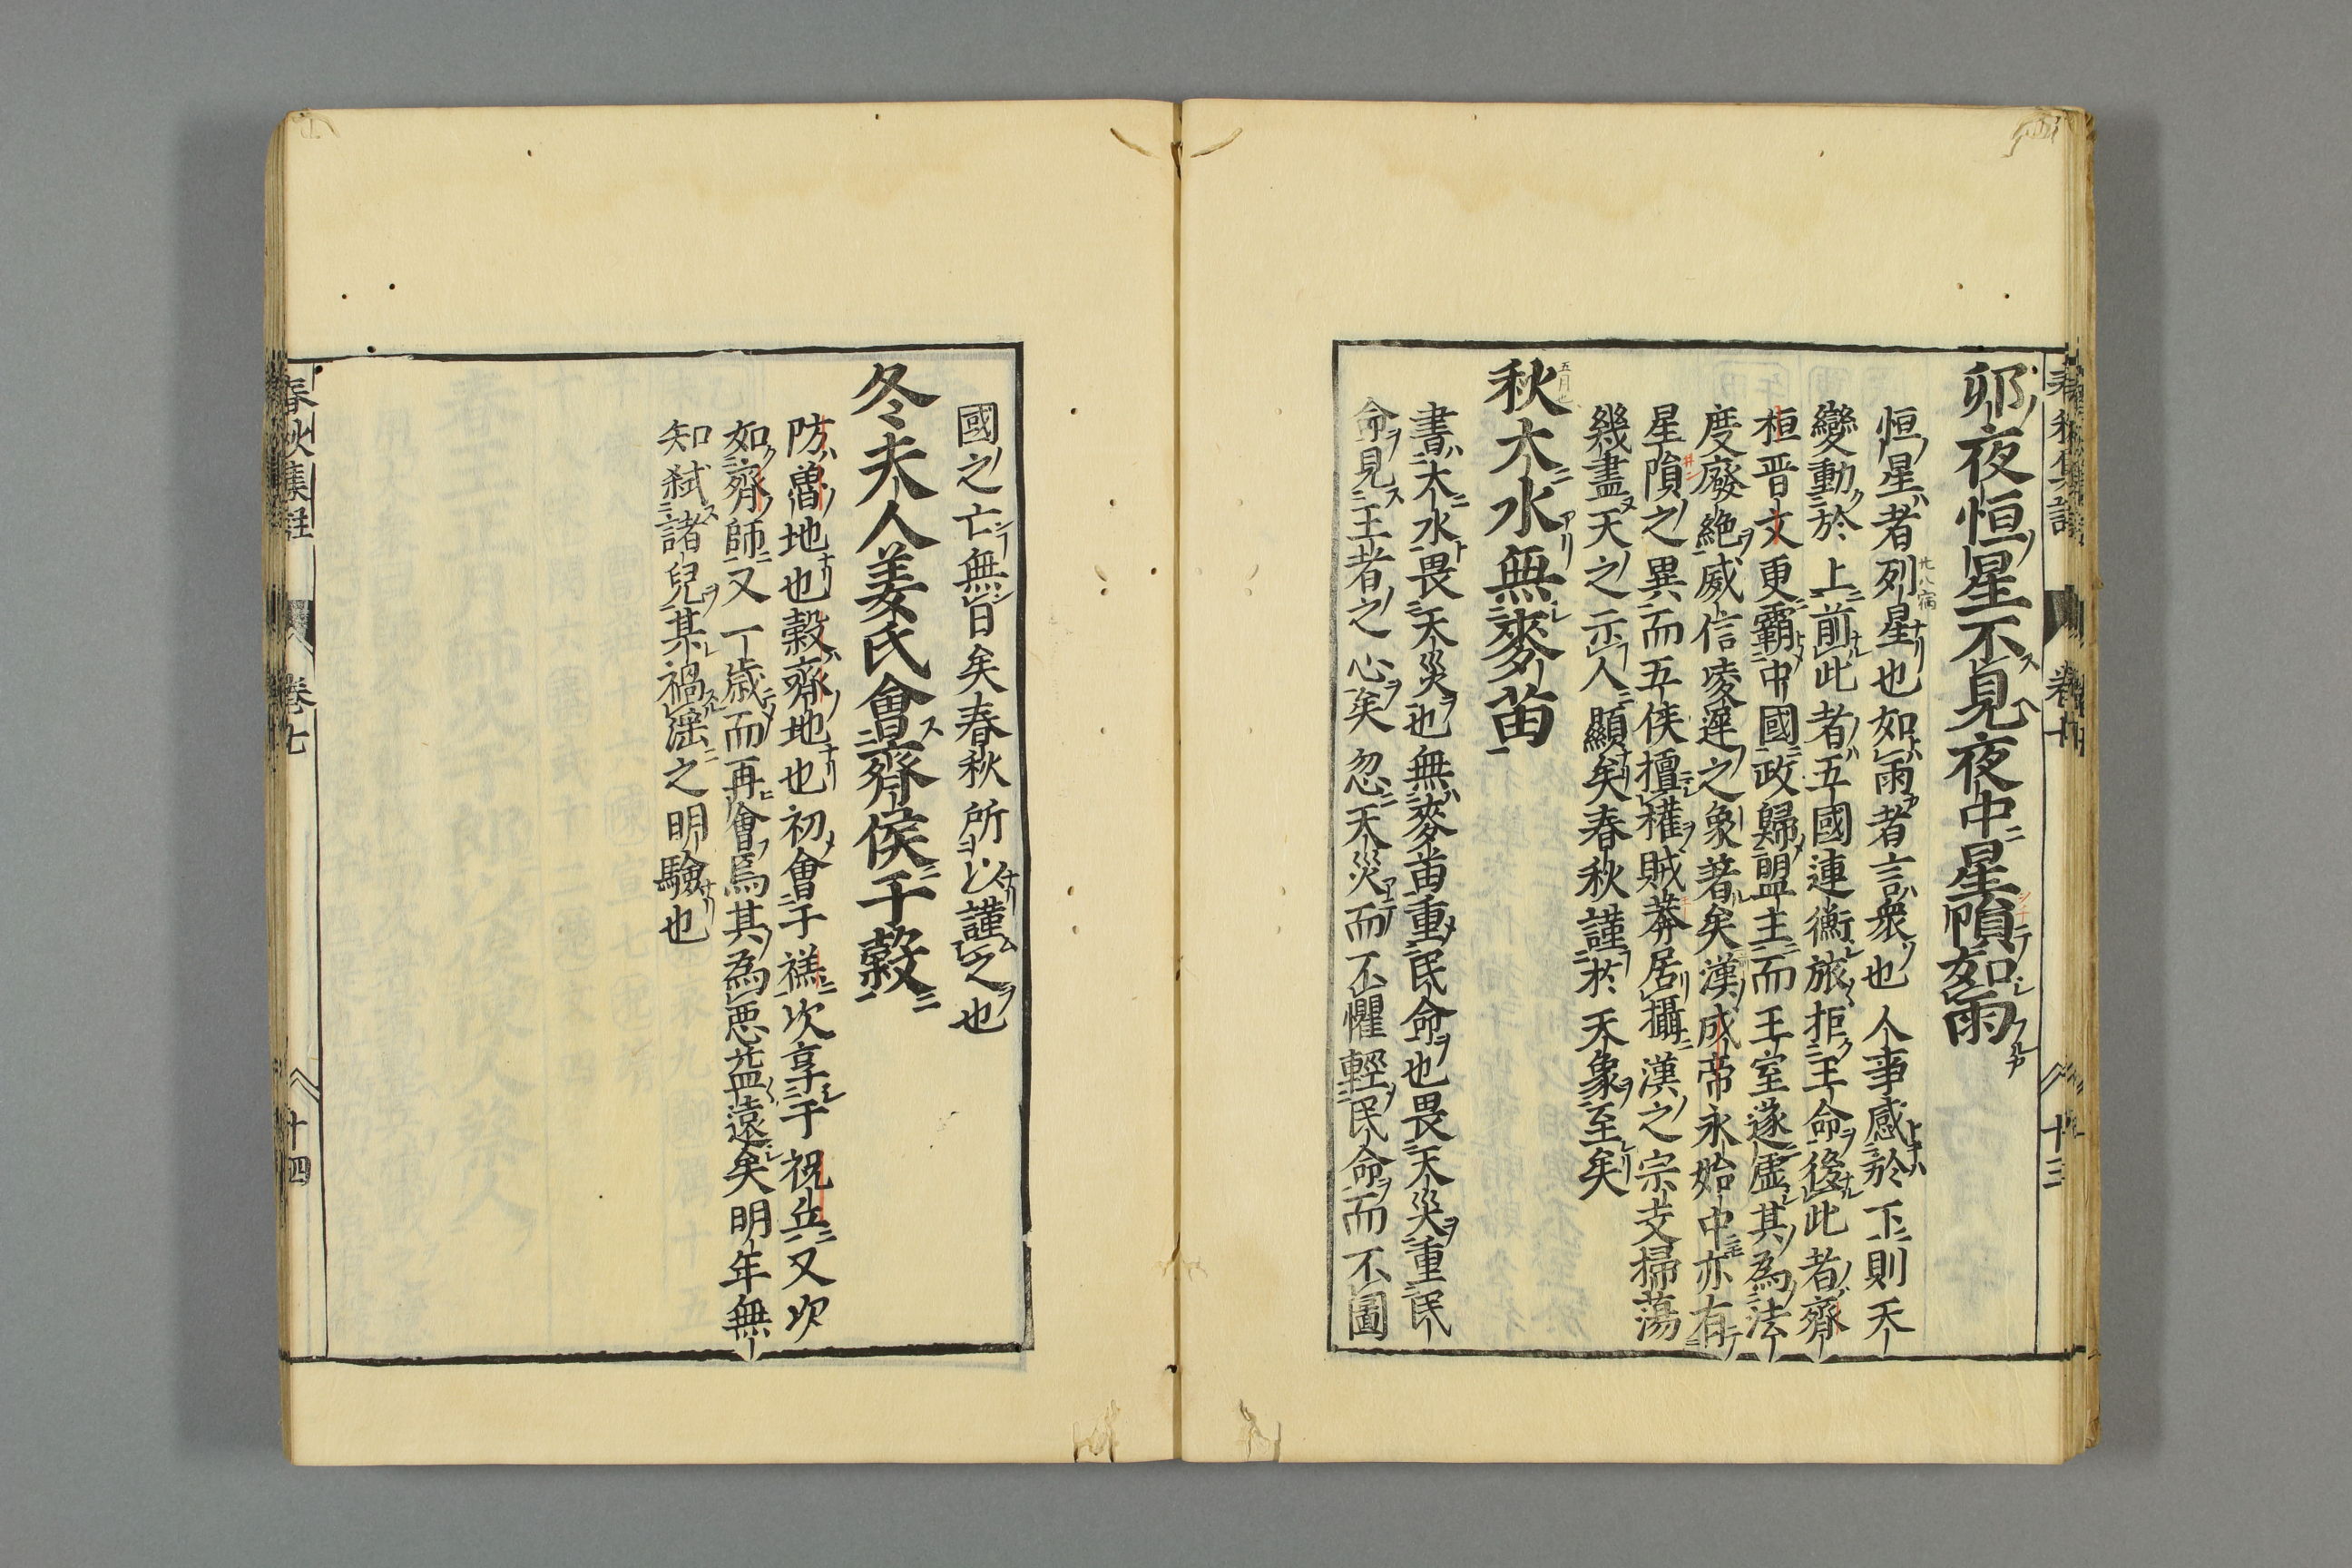 夘夜恒星不見夜中星隕如雨
恒星者列星也如雨者言衆也人事感於下則天
變動於上前此者五國連衡旅拒王命後此者齊
桓晋文更霸中國政歸盟主而王室遂虛其為法
度廢絶威信凌遲之象著矣漢成帝永始中亦有
星隕之異而五侯擅權賊莽居攝漢之宗支掃蕩
幾盡天之示人顯矣春秋謹於天象至矣
秋大水無麥苗
書大水畏天災也無麥苗重民命也畏天災重民
命見王者之心矣忽天災而不懼輕民命而不圖
十三
國之亡無日矣春秋所以謹之也
冬夫人姜氏會齊侯于穀
防魯地也穀齊地也初會于禚次享于祝丘又次
如齊師又一歲而再會焉其為惡益遠矣明年無
知弑諸兒其禍淫之明驗也
春秋集註
卷七
十四